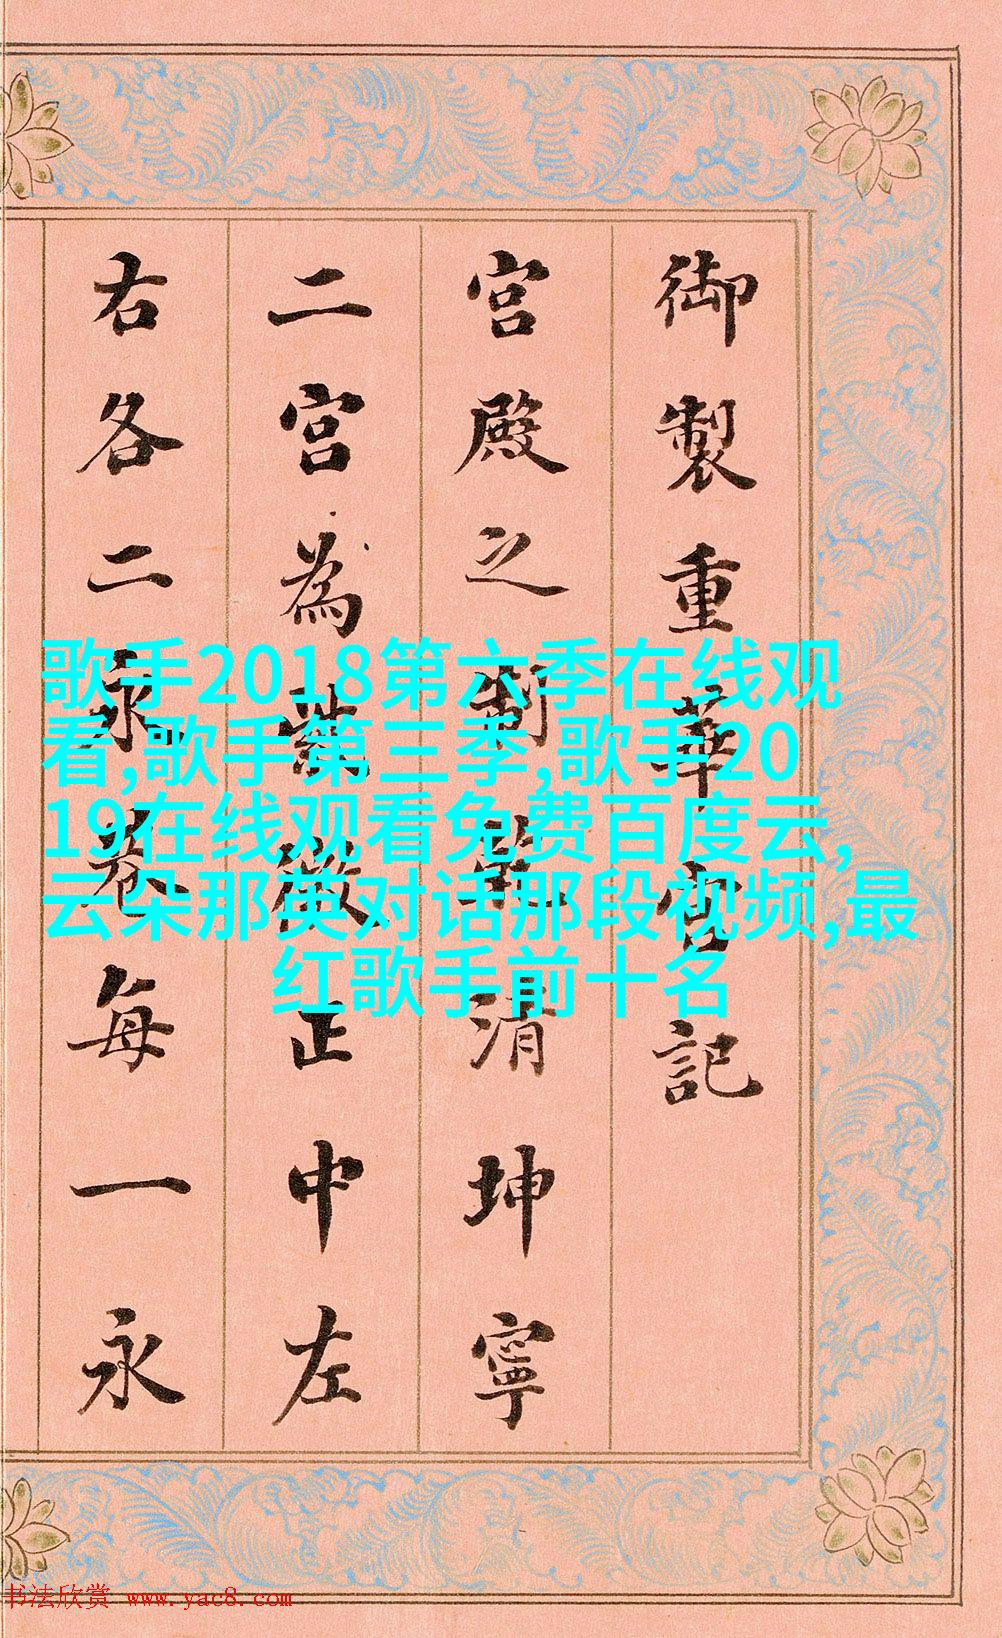 御製重華宮記
宮殿之制乾清坤寧
二宮為紫微正中左
右各二永巷每一永
歌手2018第六季在线观
看,歌手第三季,歌手20
19在线观看免费百度云,
云朵那英对话那段视频,最
红歌手前十名
书法欣赏 www.yac8.com